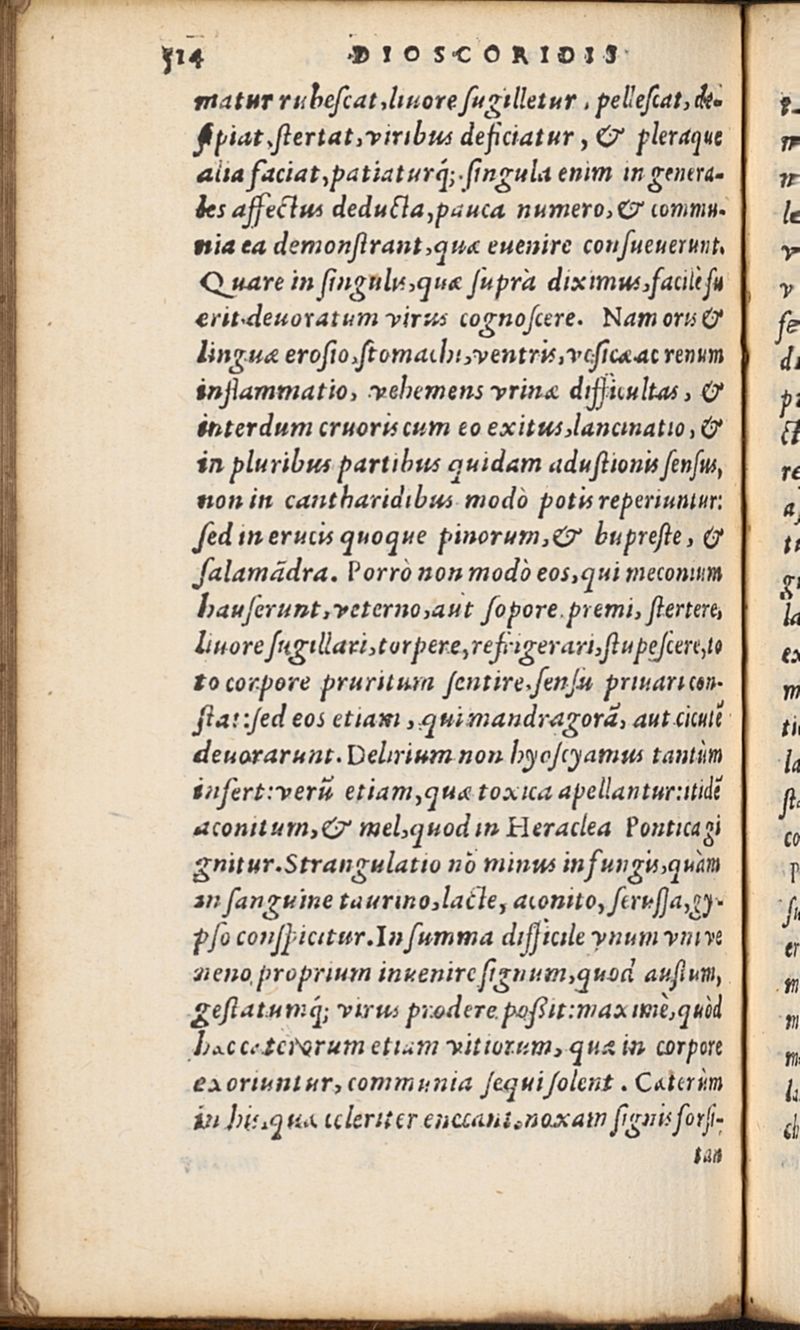 514 DIOSCORIDIS
matur rubescat, liuore sugilletur, pellescat, de-
spiat, stertat, viribus deficiatur, & pleraque
alia faciat, patiaturq́; singula enim in genera-
les affectus deducta, pauca numero, & commu-
nia ea demonstrant, quæ euenire consueuerunt.
Quare in singulis, quæ suprà diximus, facilè fu
erit deuoratum virus cognoscere. Nam oris &
linguæ erosio, stomachi, ventris, vesicæ ac renum
inflammatio, vehemens vrinæ difficultas, &
interdum cruoris cum eo exitus, lancinatio, &
in pluribus partibus quidam adustionis sensus,
non in cantharidibus modò potis reperiuntur:
sed in erucis quoque pinorum, & bupreste, &
salamãdra. Porrò non modò eos, qui meconium
hauserunt, veterno, aut sopore premi, stertere,
liuore sugillari, torpere, refrigerari, stupescere, to
to corpore pruritum sentire, sensu priuari con-
stat: sed eos etiam, qui mandragorã, aut cicutẽ
deuorarunt. Delirium non hyoscyamus tantùm
infert: verũ etiam, quæ toxica apellantur: itidẽ
aconitum, & mel, quod in Heraclea Pontica gi
gnitur. Strangulatio nõ minus in fungis, quàm
in sanguine taurino, lacte, aconito, serussa, gy-
pso conspicitur. In summa difficile vnum vni ve
neno proprium inuenire signum, quod austum,
gestatumq́; virus prodere possit: maximè, quòd
hæc cæterorum etiam vitiorum, quæ in corpore
exoriuntur, communia sequi solent. Cæterùm
in his, quæ celeriter enecant, noxam signis forsi-
tan